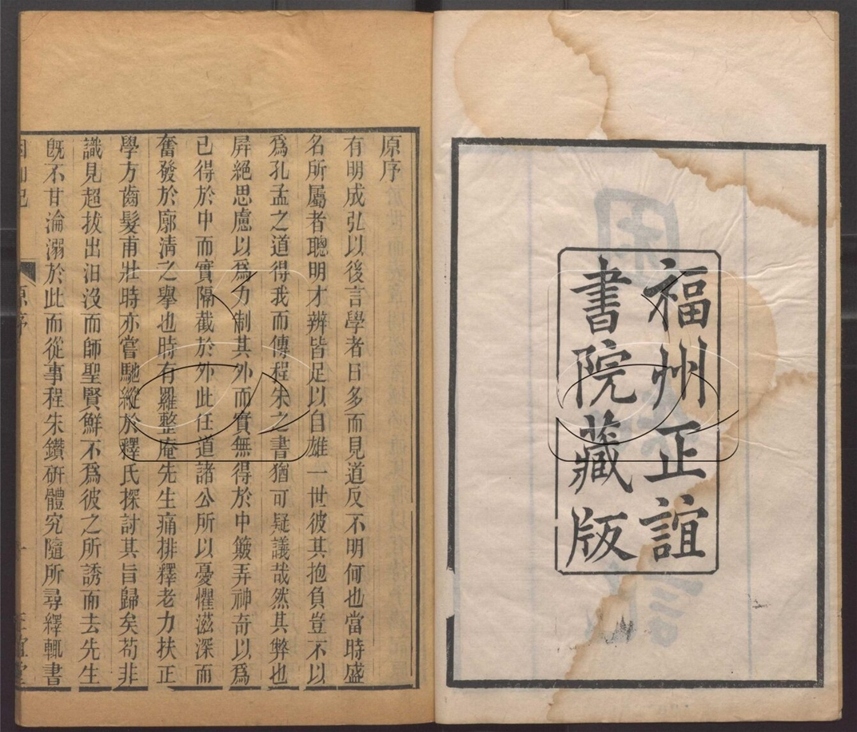 福州正誼
書院藏版
原序
有明成弘以後言學者日多而見道反不明何也當時盛
名所屬者聰明才辨皆足以自雄一世彼其抱負豈不以
爲孔孟之道得我而傳程朱之書猶可疑議哉然其弊也
屏絕思慮以爲力制其外而實無得於中簸弄神奇以爲
已得於中而實隔截於外此任道諸公所以憂懼滋深而
奮發於廓清之舉也時有羅整庵先生痛排釋老力扶正
學方齒髮甫壯時亦嘗馳縱於釋氏探討其旨歸矣苟非
識見超拔出汨沒而師聖賢鮮不爲彼之所誘而去先生
旣不甘淪溺於此而從事程朱鑽硏體究隨所尋繹輒書
原序